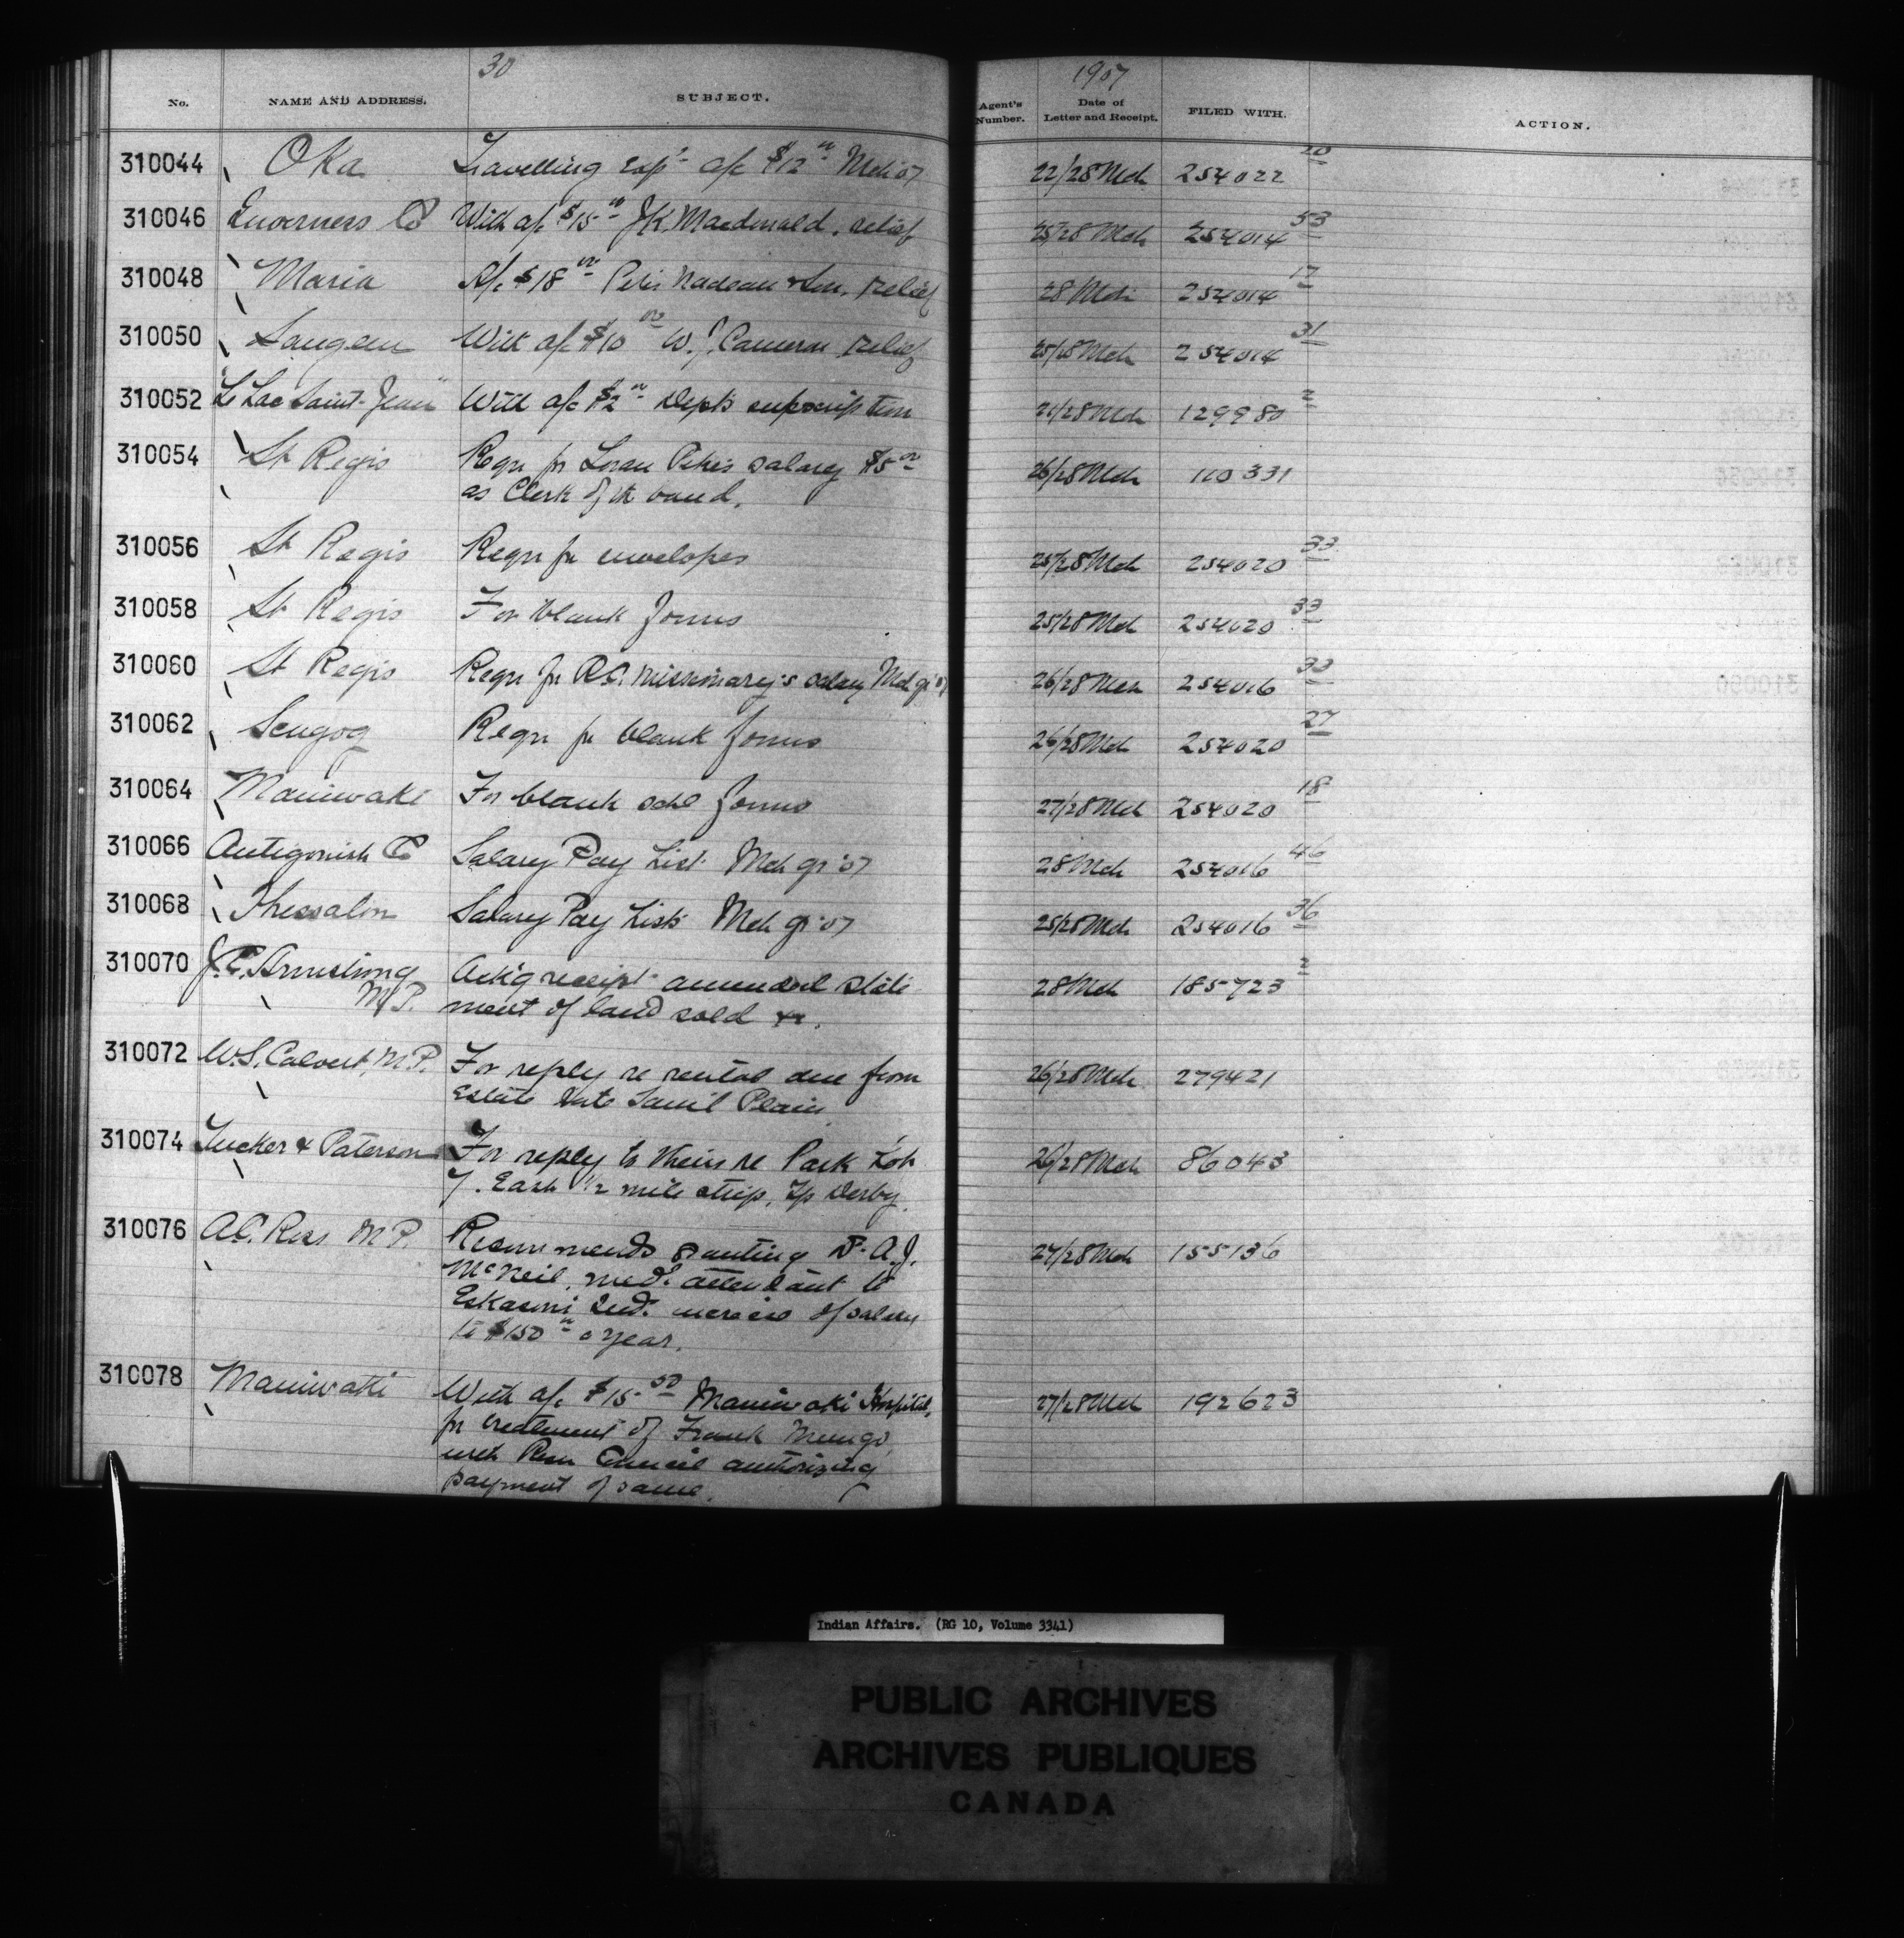 30
1907
No. NAME AND ADDRESS. SUBJECT. Agent's Number. Date of Letter and Receipt. FILED WITH. ACTION.
310044 Oka Travelling exps a/c $12 00 Mch 07 22/28 Mch 254022 20
310046 Inverness Co With a/c $15 00 J.K. Macdonald, relief 25/28 Mch 254014 53
310048 Maria A/c $18 00 Peter Nadeau & Son, relief 28 Mch 254014 17
310050 Saugeen With a/c $10 00 W.J. Cameron relief 25/28 Mch 254014 31
310052 "Le Lac Saint-Jean" With a/c $2 00 Dept's subscription 21/28 Mch 129980 2
310054 St Regis Reqn for Loran salary $5 00 26/28 Mch 110331
as Clerk of the band.
310056 St Regis Reqn for envelopes 25/28 Mch 254020 33
310058 St Regis For blank forms 25/28 Mch 254020 33
310060 St Regis Reqn for R.C. Missionary's salary Mch qr '07 26/28 Mch 254016 33
310062 Scugog Reqn for blank forms 26/28 Mch 254020 27
310064 Maniwaki For blank schl forms 27/28 Mch 254020 18
310066 Antigonish Co Salary Pay List Mch qr '07 28 Mch 254016 46
310068 Thessalon Salary Pay Lists Mch qr '07 25/28 Mch 254016 36
310070 J.E. Armstrong Ack'g receipt amended state 28 Mch 185723 2
M.P. ment of land sold &c.
310072 W.S. Calvert, M.P. For reply re rental due from 26/28 Mch 279421
Estate late Saml Plain
310074 Tucker & Paterson For reply to theirs re Park Lot 26/28 Mch 86043
7. East 1/2 mile strip, Tp Derby.
310076 A.C. Ross M.P. Recommends granting Dr A.J. 27/28 Mch 155136
McNeil, medl attendant to
Eskasoni Inds increase of salary
to $150 00 a year.
310078 Maniwaki With a/c $15 50 Maniwaki Hospital, 27/28 Mch 192623
for treatment of Frank
with Resn Council authorizing
payment of same.
Indian Affairs. (RG 10, Volume 3341)
PUBLIC ARCHIVES
ARCHIVES PUBLIQUES
CANADA